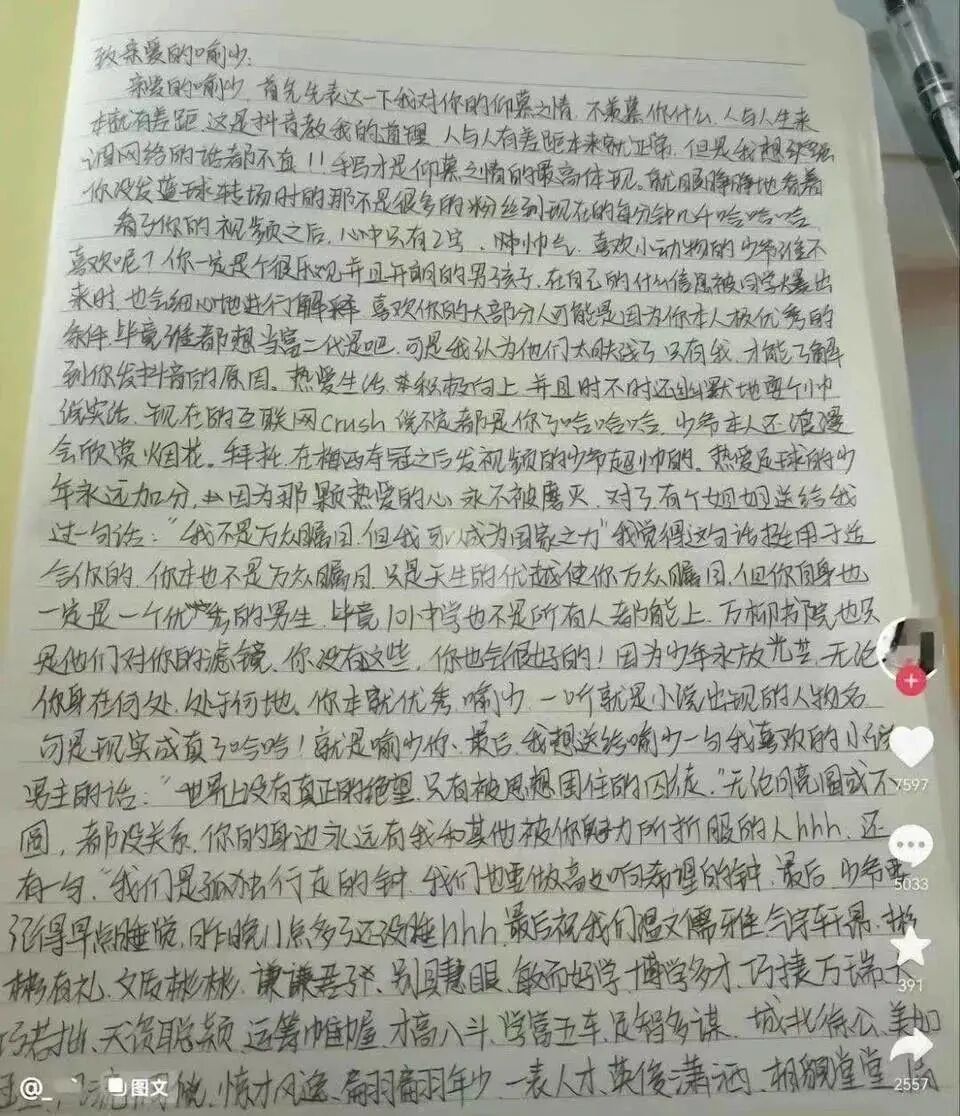 致亲爱的喻少:
亲爱的喻少 首先先表达一下我对你的仰慕之情,不羡慕你什么,人与人生来
本就有差距,这是抖音教我的道理,人与人有差距本来就正常,但是我想
网络的话都不真!!手写才是仰慕之情的最高体现。就 静静地看着
你没发蓝球转场时的那不是很多的粉丝到现在的每分钟几千哈哈哈
看了你的视频之后,心中只有2字,帅帅气,喜欢小动物的少爷谁不
喜欢呢?你一定是个很乐观并且开朗的男孩子,在自己的什么信息被同学爆出
来时,也会细心地进行解释 喜欢你的大部分人可能是因为你本人极优秀的
条件,毕竟谁都想当富二代是吧,可是我认为他们太肤浅了 只有我,才能了解
到你发抖音的原因。热爱生活 积极向上 并且时不时还幽默地耍个帅
说实话,现在的互联网crush 说不定都是你了哈哈哈,少爷本人还浪漫
会欣赏烟花。拜托,在梅西夺冠之后发视频的少爷超帅的。热爱足球的少
年永远加分,因为那颗热爱的心永不被磨灭,对了有个姐姐送给我
过一句话:“我不是万众瞩目,但我可以成为国家之力”我觉得这句话挺用于适
合你的,你本也不是万众瞩目,只是天生的优越使你万众瞩目,但你自身也
一定是一个优秀的男生,毕竟101中学也不是所有人都能上,万柳书院也只
是他们对你的滤镜,你没有这些,你也会很好的!因为少年永放光芒,无论
你身在何处,处于何地、你本就优秀,喻少,一听就是小说出现的人物名
可是现实成真了哈哈!就是喻少你、最后,我想送给喻少一句我喜欢的小说
男主的话:“世界上没有真正的绝望,只有被思想困住的囚徒。”无论月亮圆或不
圆,都没关系,你的身边永远有我和其他被你魅力所折服的人hhh,还
有一句,“我们是孤独行走的钟,我们也要做高处响希望的钟,最后,少爷要
记得早点睡觉,昨晚11点多了还没睡hhh,最后祝我们温文儒雅、气宇轩昂、彬
彬有礼、文质彬彬、谦谦君子、别具慧眼、敏而好学、博学多才、巧捷万端、大
巧若拙、天资聪颖、运筹帷幄、才高八斗、学富五车、足智多谋、城北徐公、美如
惊才风逸、翩翩年少、一表人才、英俊潇洒、相貌堂堂、
7597
5033
391
2557
@_
图文